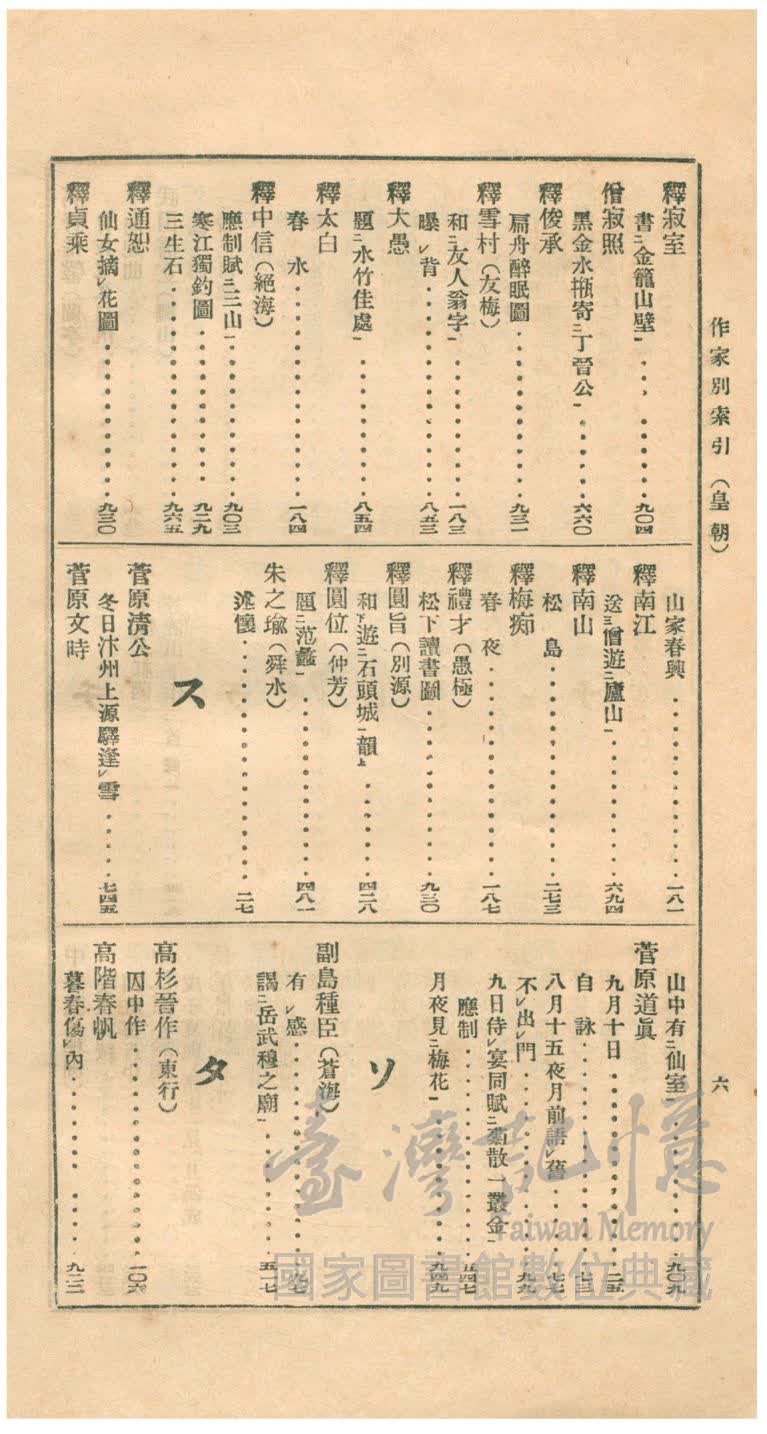 作家別索引（皇朝）
六
釋寂室
書二金籠山壁一………九〇四
僧寂照
黑金水瓶寄二丁晉公一………六六〇
釋俊承
扁舟醉眠圖………九三一
釋雪村（友梅）
和二友人翁字一………一八三
曝レ背………八五三
釋大愚
題二水竹佳處一………八五四
釋太白
春水………一八四
釋中信（絕海）
應制賦二三山一………九〇三
寒江獨釣圖………九二九
三生石………九六五
釋通恕
仙女摘レ花圖………九三〇
釋貞乘
山家春興………一八一
釋南江
送三僧遊二廬山一………六九四
釋南山
松島………二七三
釋梅痴
春夜………一八七
釋禮才（愚極）
松下讀書圖………九三〇
釋圓旨（別源）
和下遊二石頭城一韻上………四二八
釋圓位（仲芳）
題二范蠡一………四八一
朱之瑜（舜水）
述懷………二七
ス
菅原清公
冬日汴州上源驛逢レ雪………七四五
菅原文時
山中有二仙室一………九〇九
菅原道眞
九月十日………二五
自詠………七三
八月十五夜月前話レ舊………七七
不レ出レ門………九九
九日侍レ宴同賦三菊散二一叢金一
應制………五四七
月夜見二梅花一………九四九
ソ
副島種臣（蒼海）
有レ感………九七
謁二岳武穆之廟一………五一七
タ
高杉晉作（東行）
囚中作………一〇六
高階春帆
暮春傷レ內………九二二
臺灣記憶
Taiwan Memory
國家圖書館數位典藏